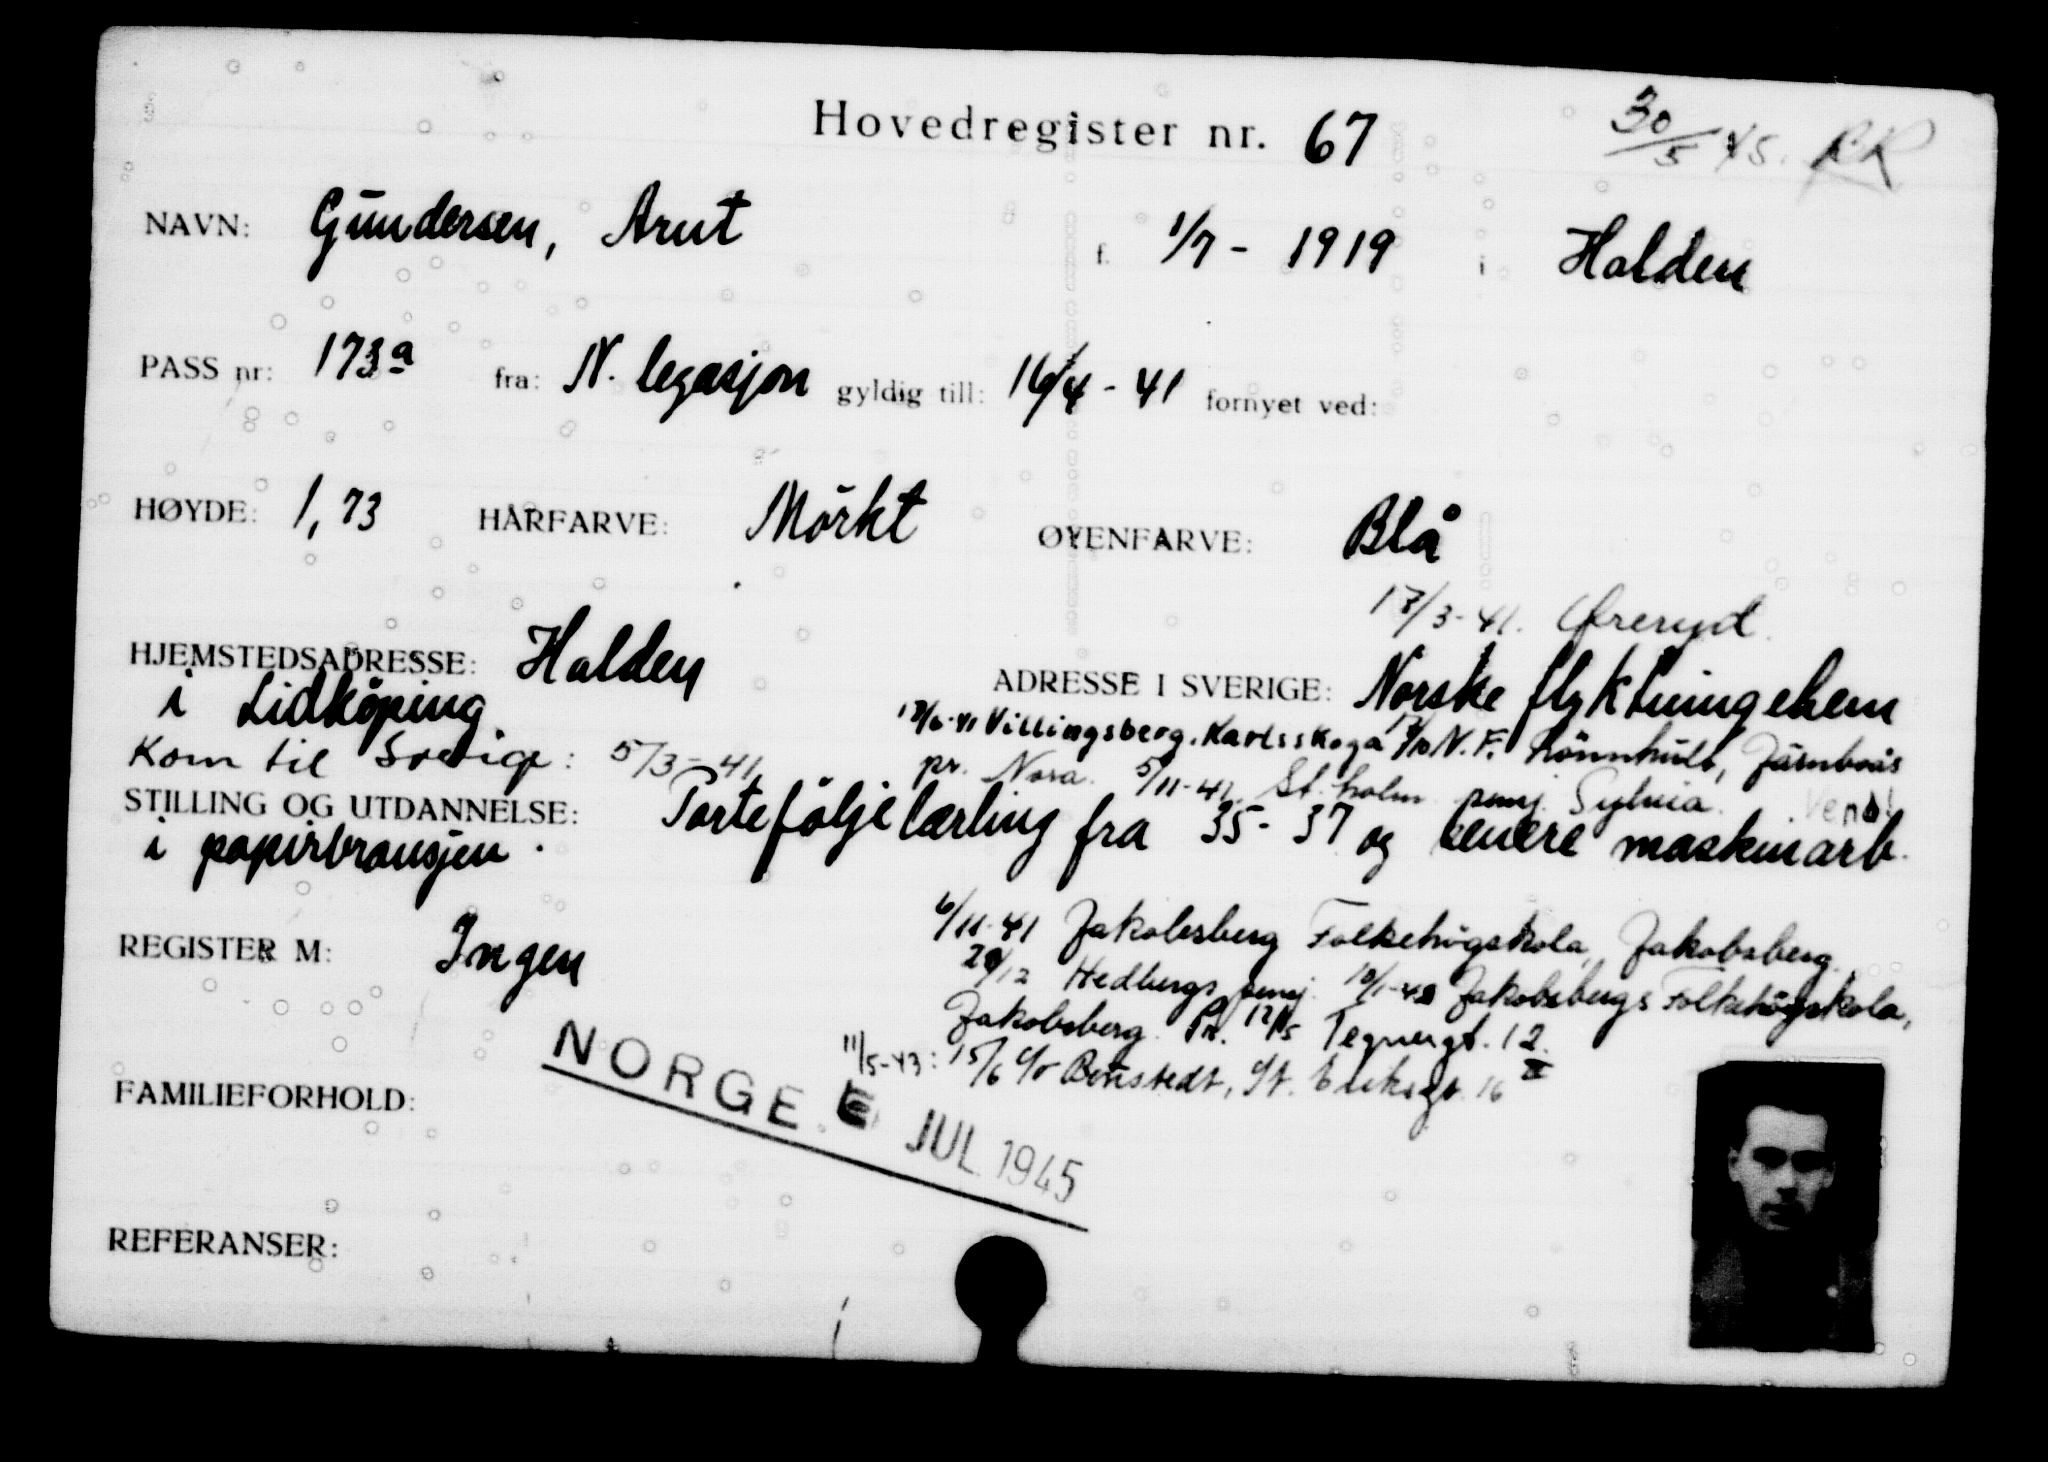 Hovedregister nr. 67 30/5 45. RR
NAVN: Gundersen, Arnt f. 1/7 - 1919 i Halden
PASS nr: 173a fra: N. legasjon gyldig till: 16/4 - 41 fornyet ved:
HØYDE: 1,73 HÅRFARVE: Mörkt ØYENFARVE: Blå
17/3-41. Öreryd.
HJEMSTEDSADRESSE: Halden ADRESSE I SVERIGE: Norske flyktningehem
i Lidköping
17/6-41 Villingsberg, Karlskoga N.F. Rönnhult, Järnboås
Kom til Sverige: 5/3-41 pr. Nora. 5/11-41. St.holm pensj. Sylvia. Vend!
STILLING OG UTDANNELSE: Portefölje lærling fra 35-37 og senere maskinarb.
i papirbransjen.
6/11-41 Jakobsberg Folkehögskola, Jakobsberg.
REGISTER M: Ingen
Hedbergs pensj. 10/1-42 Jakobsbergs Folkehögskola,
Jakobsberg. Pr. 12/5 Tegnergt. 12 II
11/5-43: 15/6 c/o Benstedt, St. Eriksgt. 16
NORGE. JUL 1945
FAMILIEFORHOLD:
REFERANSER: